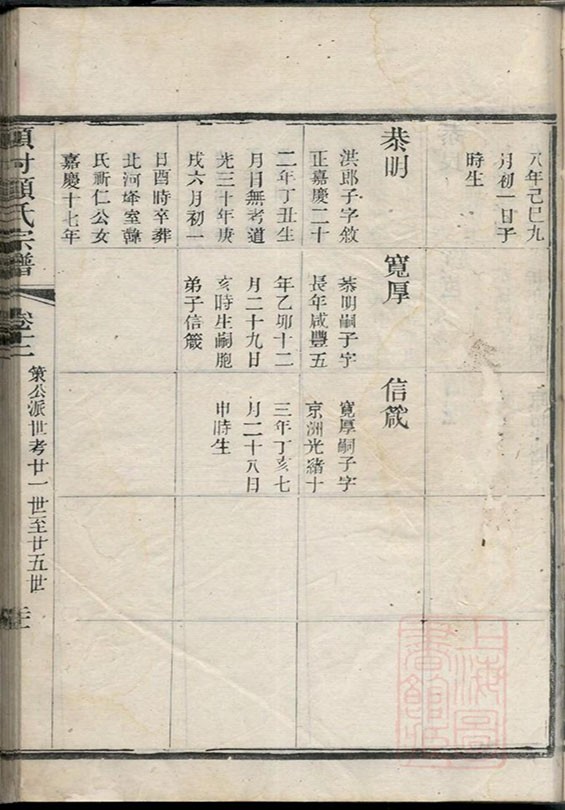 八年己巳九
月初一日子
時生
恭明
洪郎子字敘
正嘉慶二十
二年丁丑生
月日無考道
光三十年庚
戌六月初一
日酉時卒葬
北河塝室韓
氏新仁公女
嘉慶十七年
寬厚
恭明嗣子字
長年咸豐五
年乙卯十二
月二十九日
亥時生嗣胞
弟子信箴
信箴
寬厚嗣子字
京洲光緒十
三年丁亥七
月二十八日
申時生
項氏宗譜
卷十二
策公派世考廿一世至廿五世
上海圖
書館藏